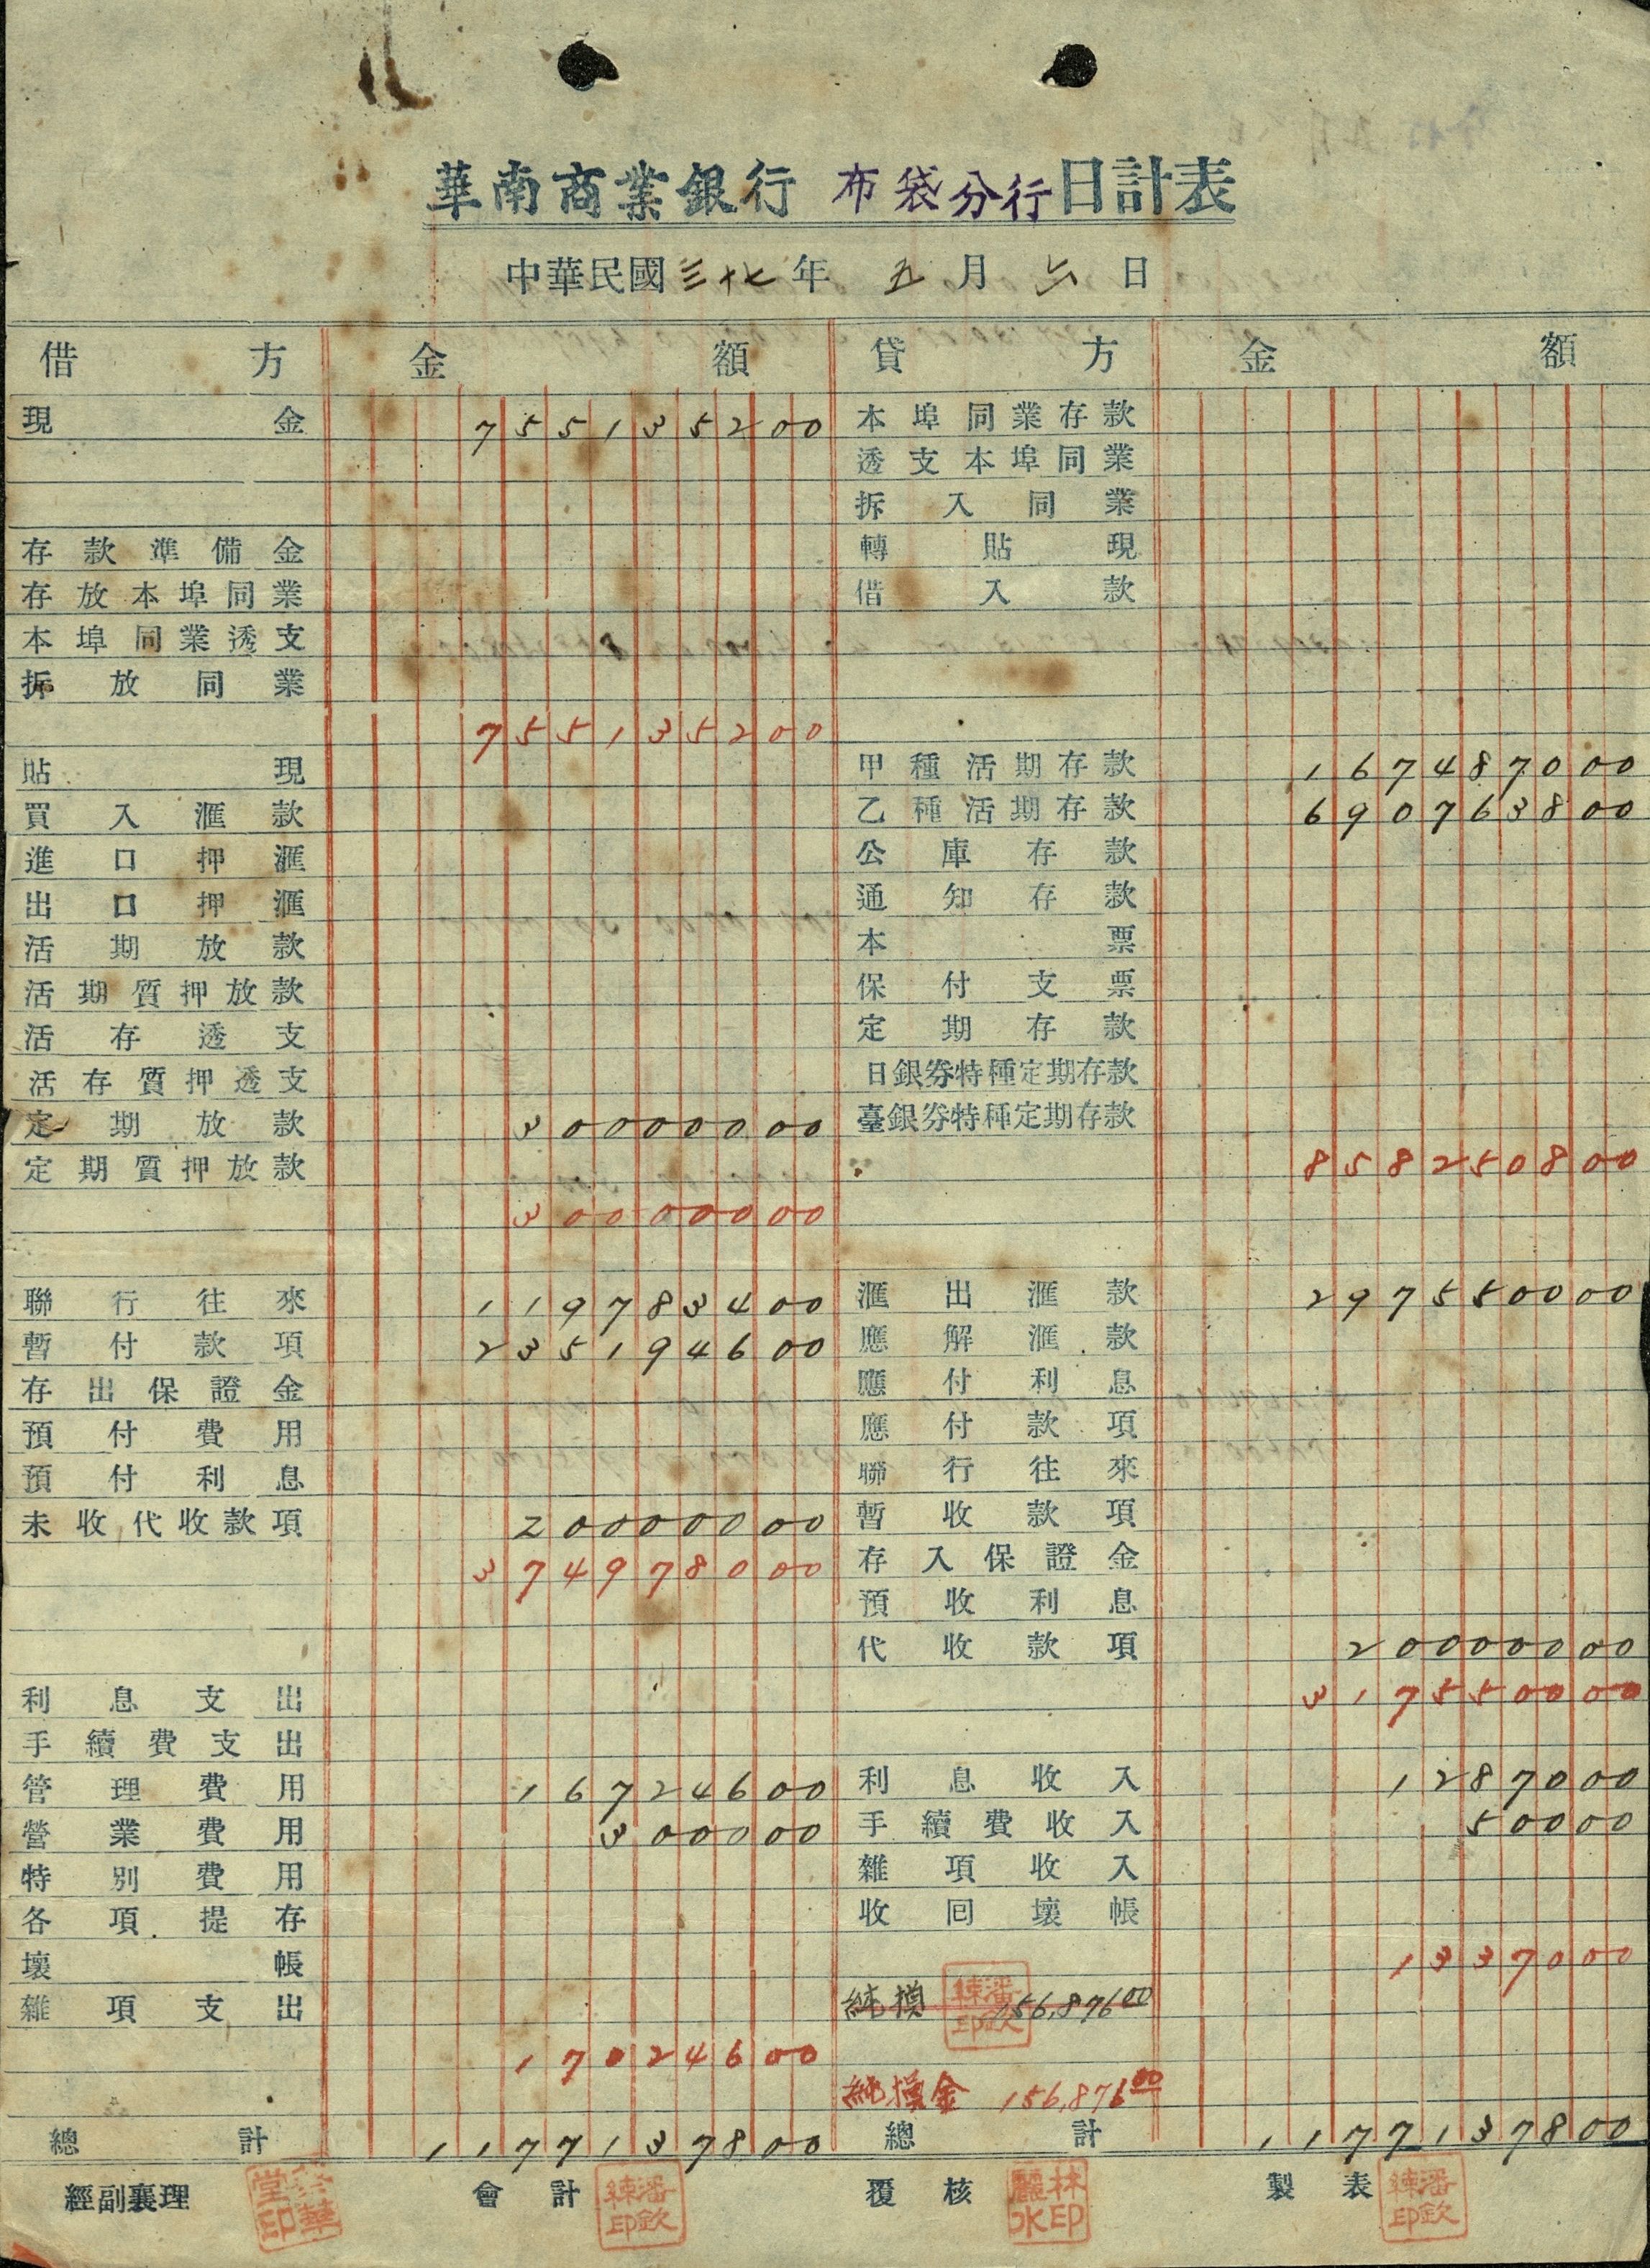 華南商業銀行 布袋分行 日計表
中華民國三十七年 五月 六日
借方 金額
現金 755135200
存款準備金
存放本埠同業
本埠同業透支
拆放同業
755135200
貼現
買入滙款
進口押滙
出口押滙
活期放款
活期質押放款
活存透支
活存質押透支
定期放款 30000000
定期質押放款
30000000
聯行往來 119783400
暫付款項 235194600
存出保證金
預付費用
預付利息
未收代收款項 20000000
374978000
利息支出
手續費支出
管理費用 16724600
營業費用 300000
特別費用
各項提存
壞帳
雜項支出
17024600
總計 1177137800
貸方 金額
本埠同業存款
透支本埠同業
拆入同業
轉貼現
借入款
甲種活期存款 167487000
乙種活期存款 690763800
公庫存款
通知存款
本票
保付支票
定期存款
日銀券特種定期存款
臺銀券特種定期存款
858250800
滙出滙款 297550000
應解滙款
應付利息
應付款項
聯行往來
暫收款項
存入保證金
預收利息
代收款項 20000000
317550000
利息收入 1287000
手續費收入 50000
雜項收入
收回壞帳
1337000
純損 156,876.00
純損金 156,876.00
總計 1177137800
經副襄理 會計 覆核 林麗水印 製表